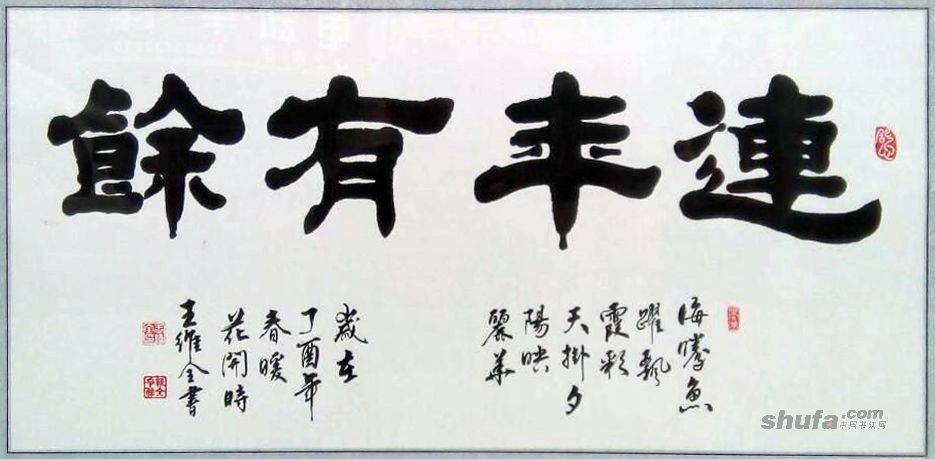 連年有餘
海騰魚
躍飄
霞彩
天掛夕
陽映
麗華
歲在
丁酉年
春暖
花開時
王維全書
shufa.com
中国书法网